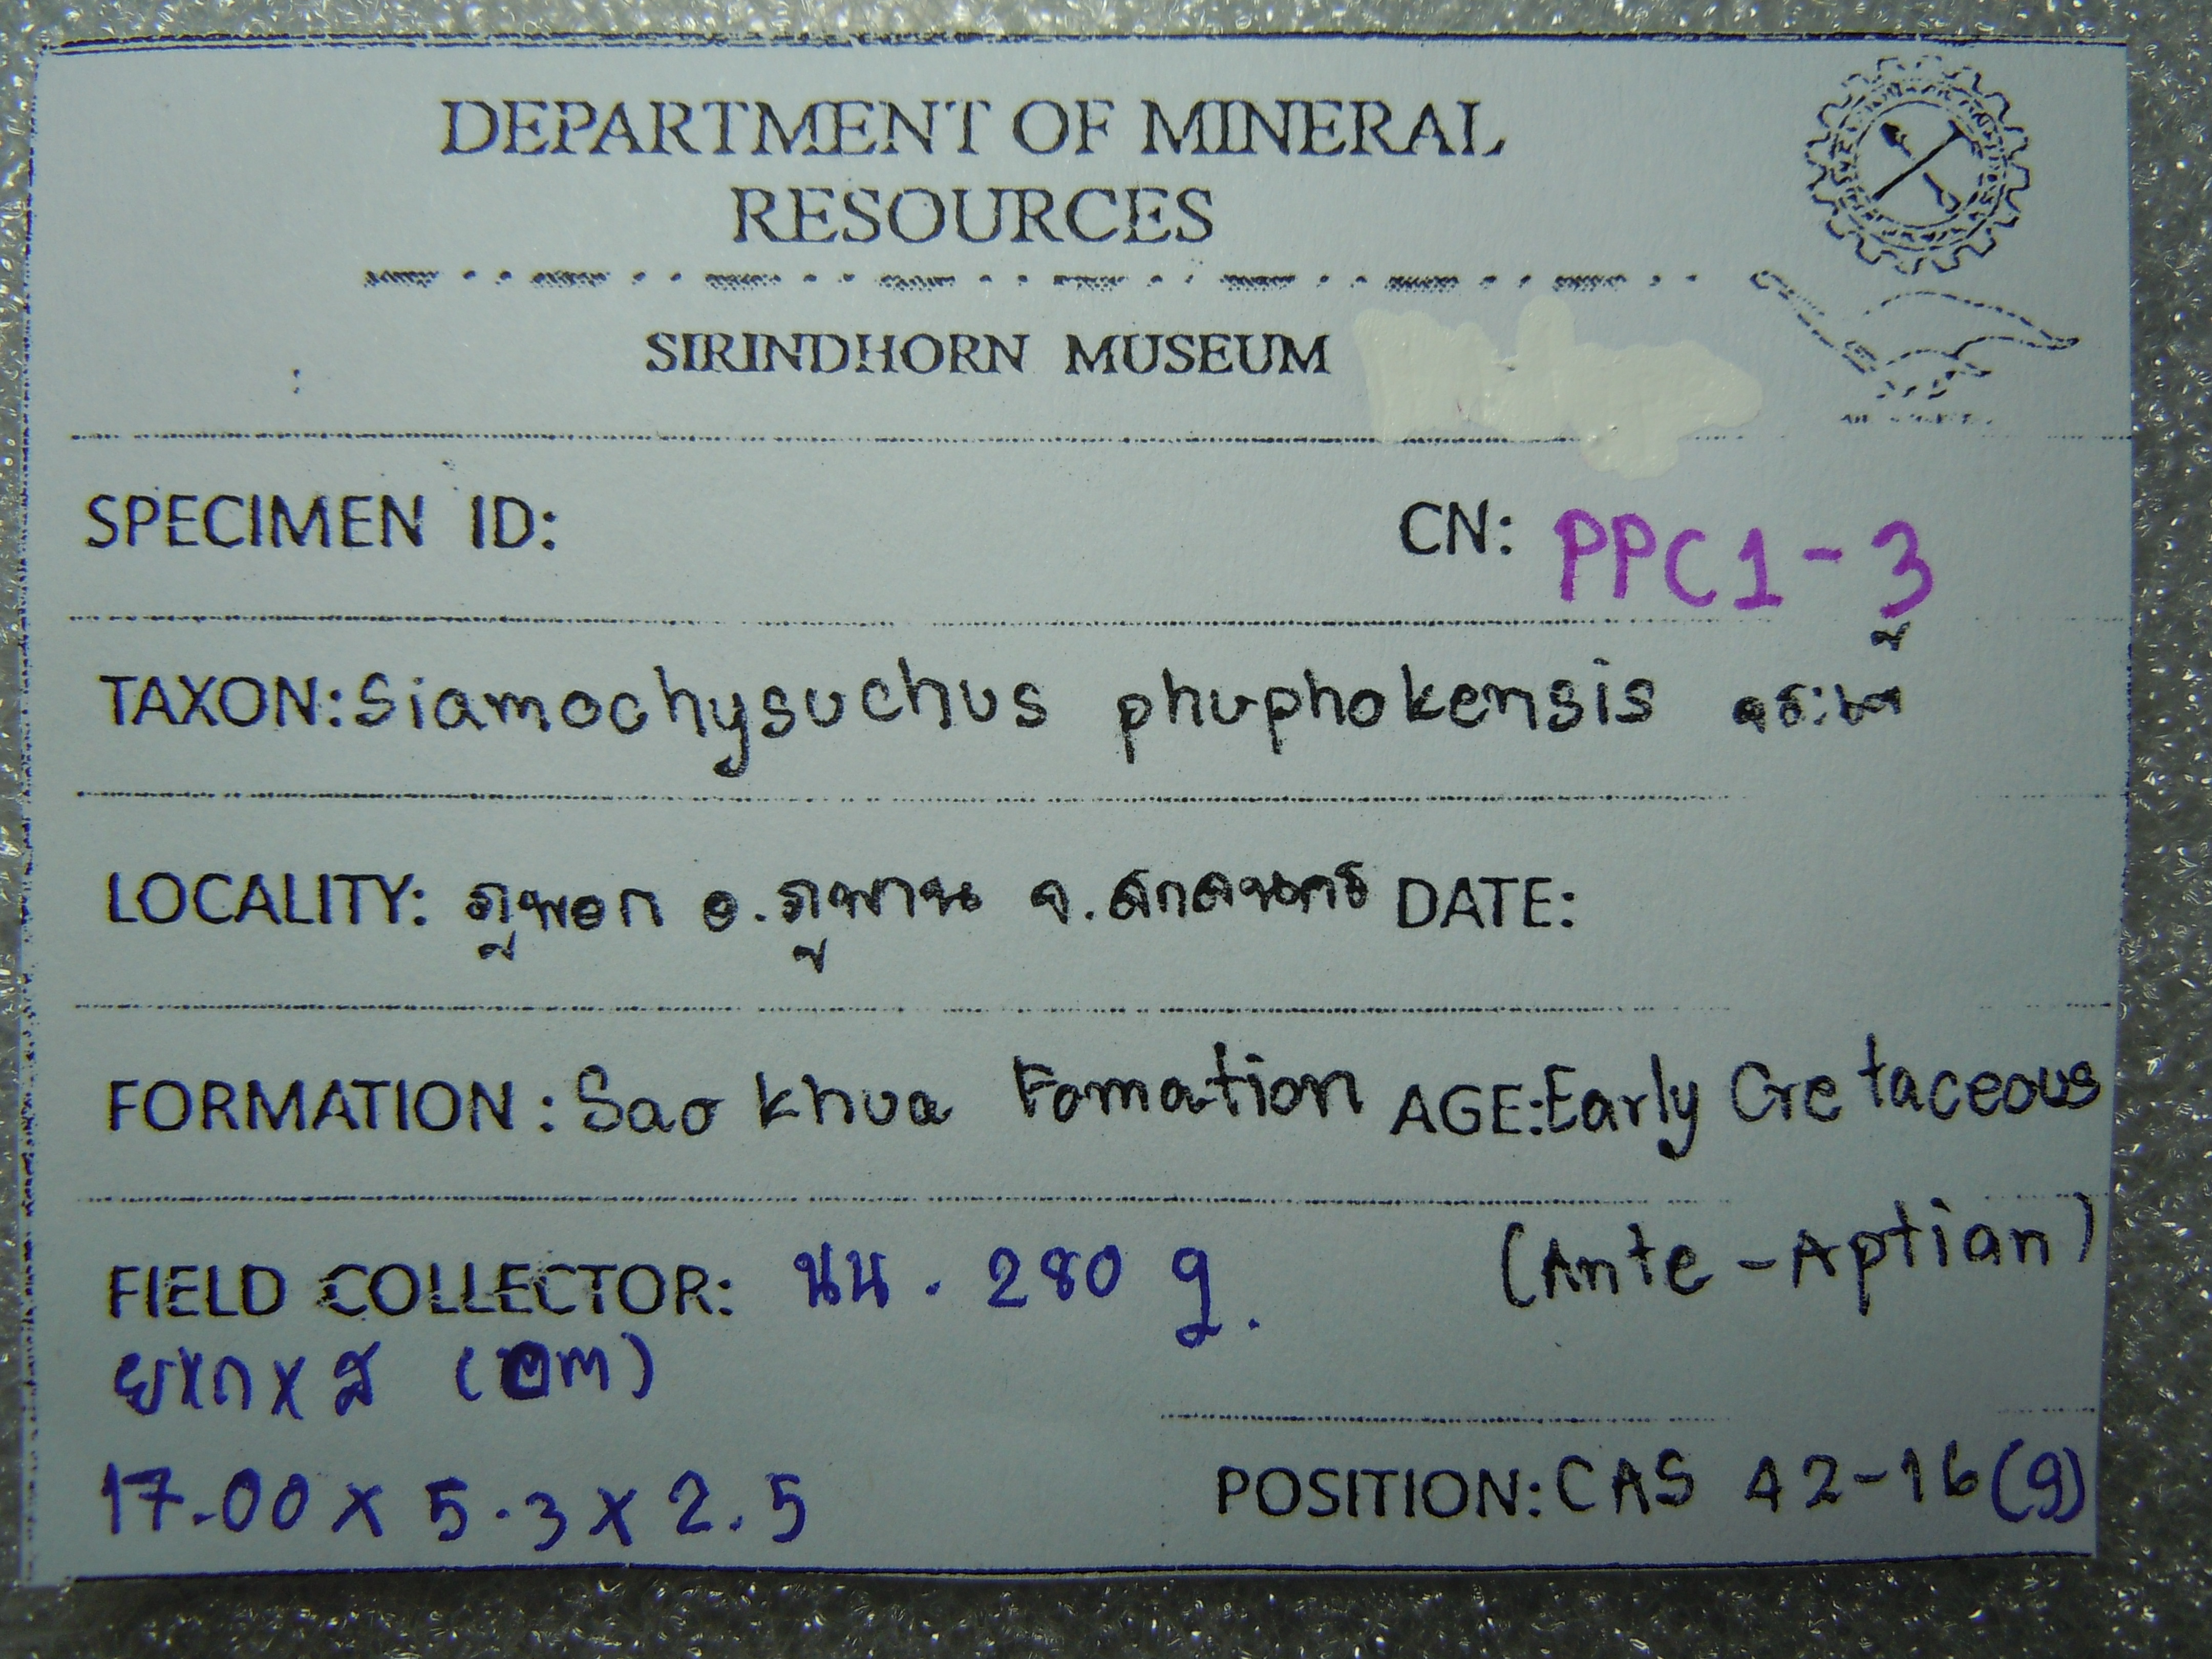 DEPARTMENT OF MINERAL
RESOURCES
SIRINDHORN MUSEUM
SPECIMEN ID: CN: PPC1-3
TAXON: Siamochysuchus phuphokensis จระเข้
LOCALITY: ภูพอก อ.ภูพาน จ.สกลนคร DATE:
FORMATION: Sao khua Fomation AGE: Early Cretaceous
(Ante-Aptian)
FIELD COLLECTOR: นน. 280 g.
ยxกxส (cm)
17.00 x 5.3 x 2.5
POSITION: CAS 42-16(9)